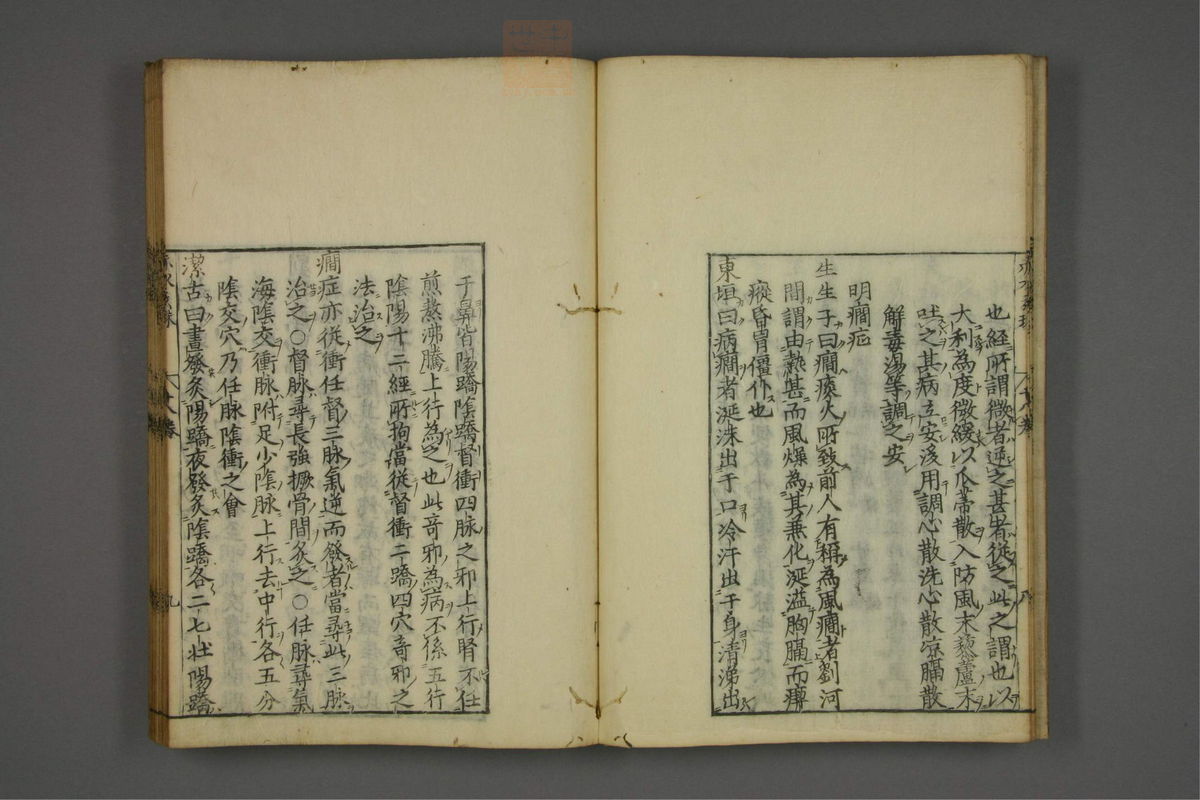 也経所謂微者逆之甚者從之此之謂也以
大利為度微緩以瓜蒂散入防風末藜蘆末
吐之其病立安後用調心散洗心散凉膈散
解毒湯等調之安
明癇症
生生子曰癇痰火所致前人有稱為風癇者劉河
間謂由熱甚而風燥為其兼化涎溢胸膈而瘈
瘲昏冒僵仆也
東垣曰病癇者涎沫出于口冷汗出于身清涕出
于鼻皆陽蹻陰蹻督衝四脉之邪上行腎不任
煎熬沸騰上行為之也此奇邪為病不係五行
陰陽十二經所拘當從督衝二蹻四穴奇邪之
法治之
癇症亦從衝任督三脉氣逆而發者當尋此三脉
治之〇督脉尋長強撅骨間灸之〇任脉尋氣
海陰交衝脉附足少陰脉上行去中行各五分
陰交穴乃任脉陰衝之會
潔古曰晝發灸陽蹻夜發灸陰蹻各二七壯陽蹻